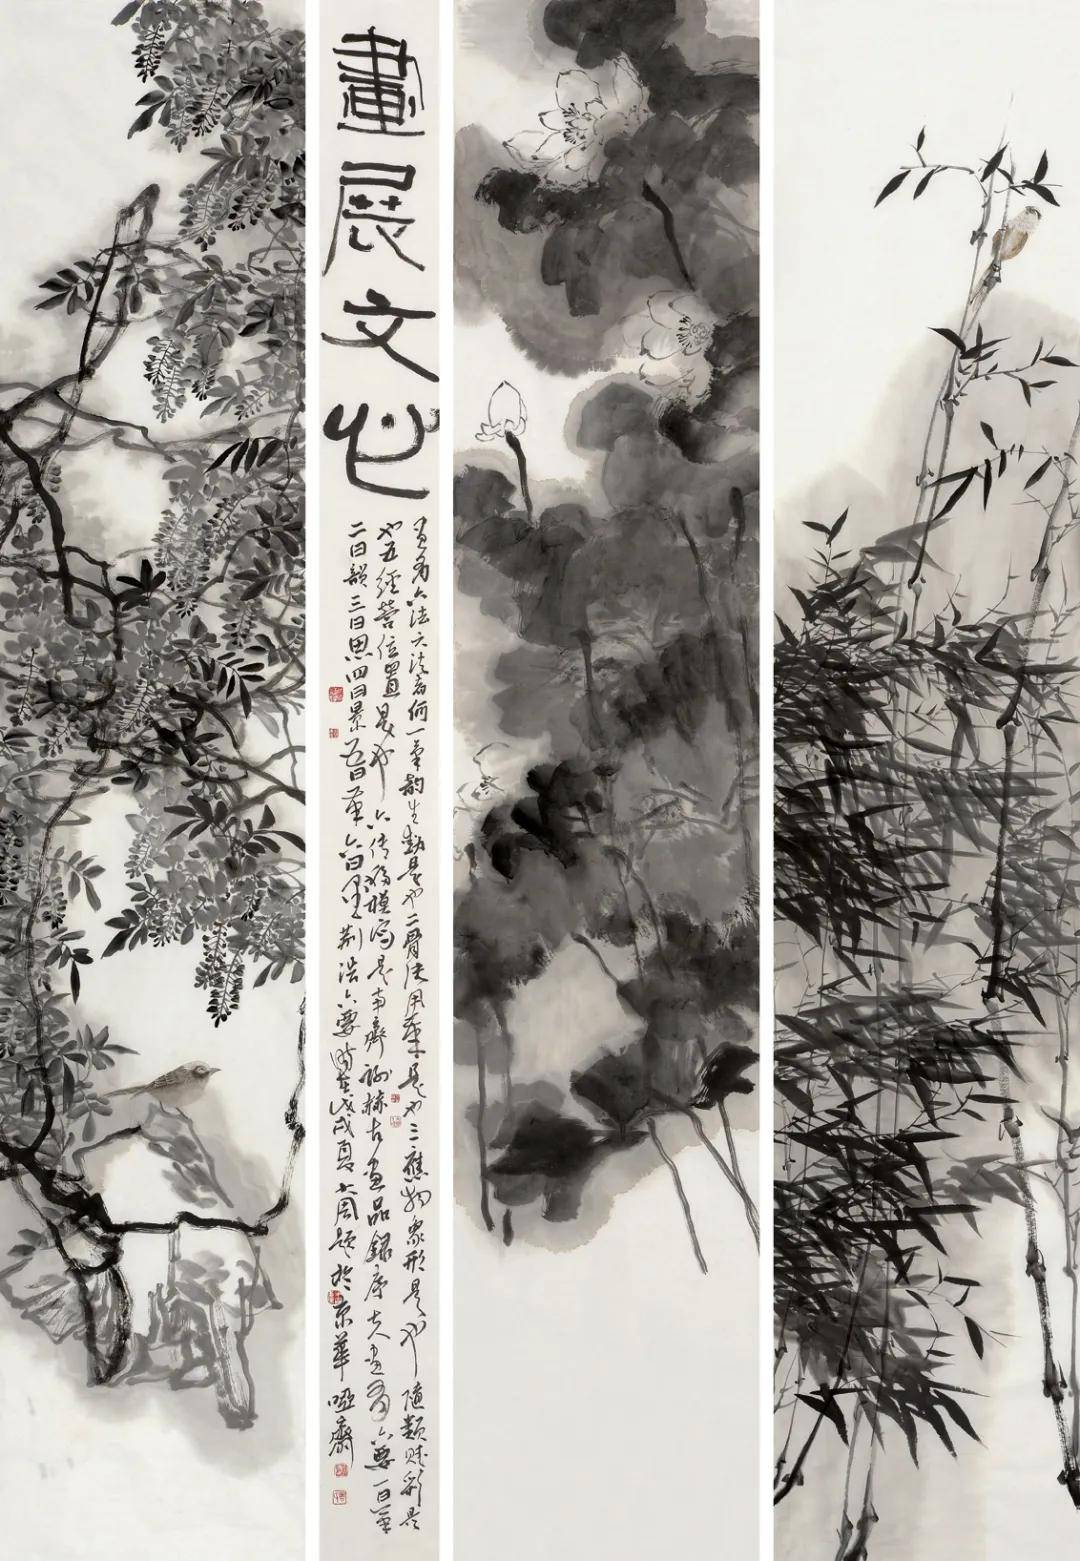 畫展文心
畫有六法六法者何一氣韵生動是也二骨法用筆是也三應物象形是也隨類賦彩是
也五經營位置是也六傳移模寫是南齊謝赫古畫品録序夫畫有六要一曰氣
二曰韻三曰思四曰景五曰筆六曰墨荆浩六要時在戊戌夏大周題於京華啞齋